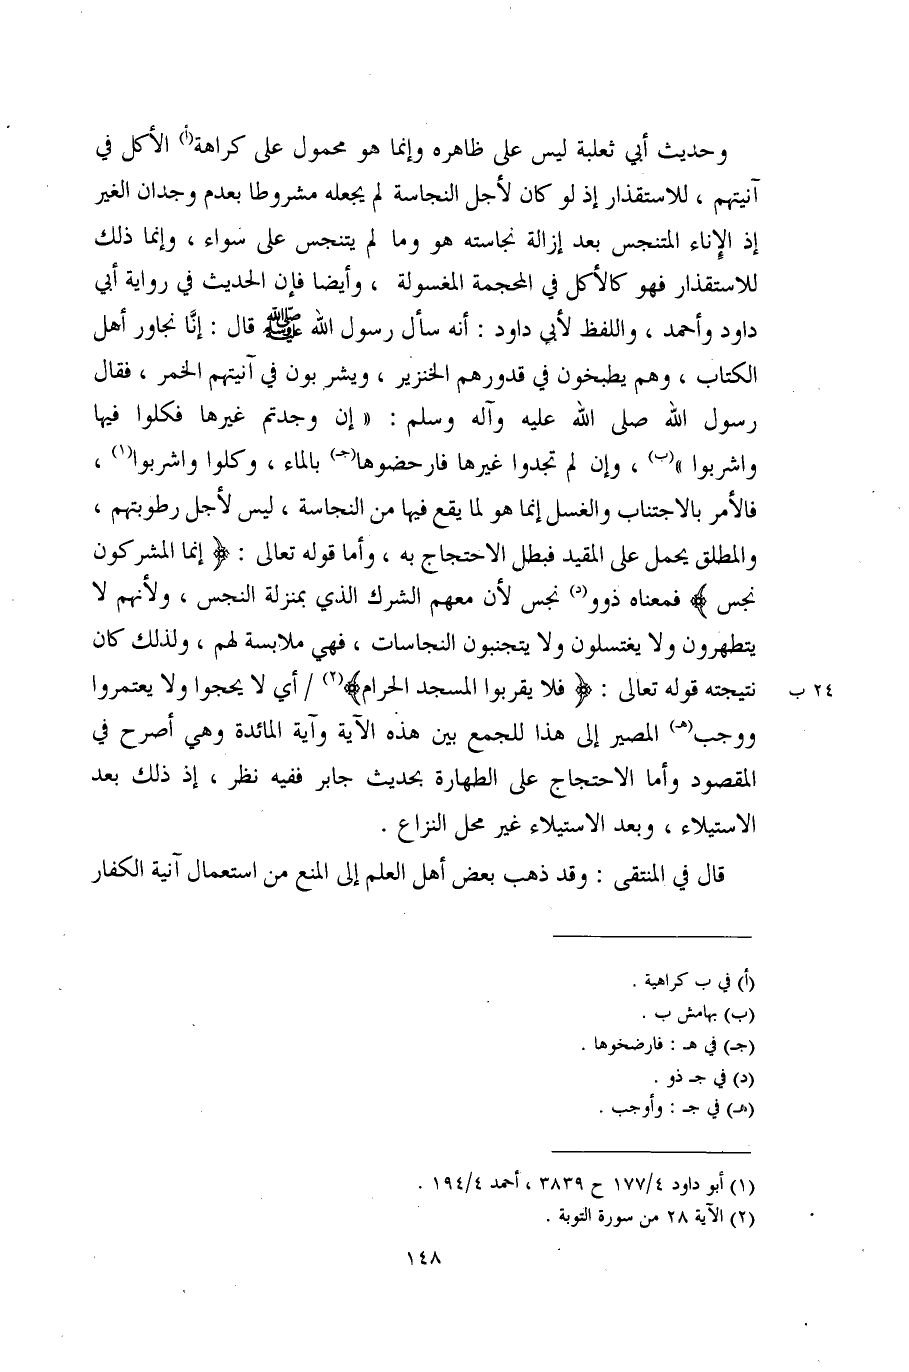 وحديث أبي ثعلبة ليس على ظاهره وإنما هو محمول على كراهة(أ) الأكل في
آنيتهم ، للاستقذار إذ لو كان لأجل النجاسة لم يجعله مشروطا بعدم وجدان الغير
إذ الإناء المتنجس بعد إزالة نجاسته هو وما لم يتنجس على سواء ، وإنما ذلك
للاستقذار فهو كالأكل في المحجمة المغسولة ، وأيضا فإن الحديث في رواية أبي
داود وأحمد ، واللفظ لأبي داود : أنه سأل رسول الله ﷺ قال : إنَّا نجاور أهل
الكتاب ، وهم يطبخون في قدورهم الخنزير ، ويشربون في آنيتهم الخمر ، فقال
رسول الله صلى الله عليه وآله وسلم : « إن وجدتم غيرها فكلوا فيها
واشربوا »(ب) ، وإن لم تجدوا غيرها فارحضوها(جـ) بالماء ، وكلوا واشربوا(١) ،
فالأمر بالاجتناب والغسل إنما هو لما يقع فيها من النجاسة ، ليس لأجل رطوبتهم ،
والمطلق يحمل على المقيد فبطل الاحتجاج به ، وأما قوله تعالى : ﴿ إنما المشركون
نجس ﴾ فمعناه ذوو(د) نجس لأن معهم الشرك الذي بمنزلة النجس ، ولأنهم لا
يتطهرون ولا يغتسلون ولا يتجنبون النجاسات ، فهي ملابسة لهم ، ولذلك كان
نتيجته قوله تعالى : ﴿ فلا يقربوا المسجد الحرام﴾(٢) / أي لا يحجوا ولا يعتمروا
٢٤ ب
ووجب(هـ) المصير إلى هذا للجمع بين هذه الآية وآية المائدة وهي أصرح في
المقصود وأما الاحتجاج على الطهارة بحديث جابر ففيه نظر ، إذ ذلك بعد
الاستيلاء ، وبعد الاستيلاء غير محل النزاع .
قال في المنتقى : وقد ذهب بعض أهل العلم إلى المنع من استعمال آنية الكفار
(أ) في ب كراهية .
(ب) بهامش ب .
(جـ) في هـ : فارضخوها .
(د) في جـ ذو .
(هـ) في جـ : وأوجب .
(١) أبو داود ١٧٧/٤ ح ٣٨٣٩ ، أحمد ١٩٤/٤ .
(٢) الآية ٢٨ من سورة التوبة .
١٤٨